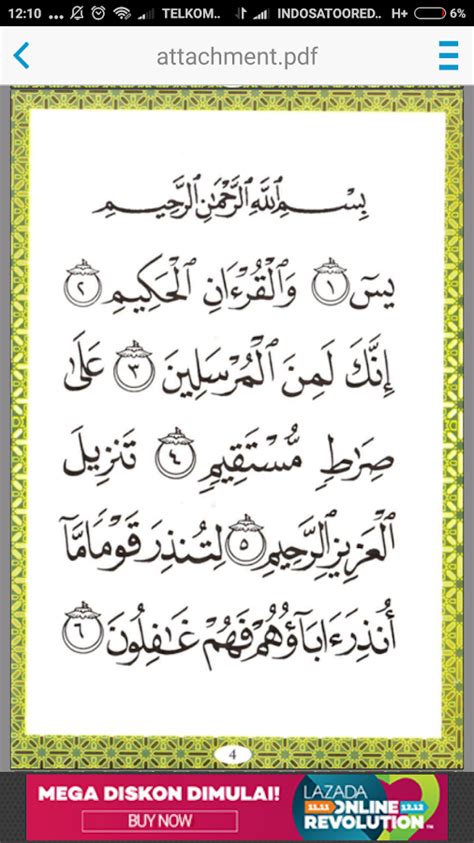 12:10 ... TELKOM.. INDOSATOORED.. H+ 6%
attachment.pdf
بِسْمِ ٱللَّهِ ٱلرَّحْمَٰنِ ٱلرَّحِيمِ
يسٓ ١ وَٱلْقُرْءَانِ ٱلْحَكِيمِ ٢
إِنَّكَ لَمِنَ ٱلْمُرْسَلِينَ ٣ عَلَىٰ
صِرَٰطٍ مُّسْتَقِيمٍ ٤ تَنزِيلَ
ٱلْعَزِيزِ ٱلرَّحِيمِ ٥ لِتُنذِرَ قَوْمًا مَّآ
أُنذِرَ ءَابَآؤُهُمْ فَهُمْ غَٰفِلُونَ ٦
4
MEGA DISKON DIMULAI!
BUY NOW
LAZADA
11.11 ONLINE 12.12
REVOLUTION